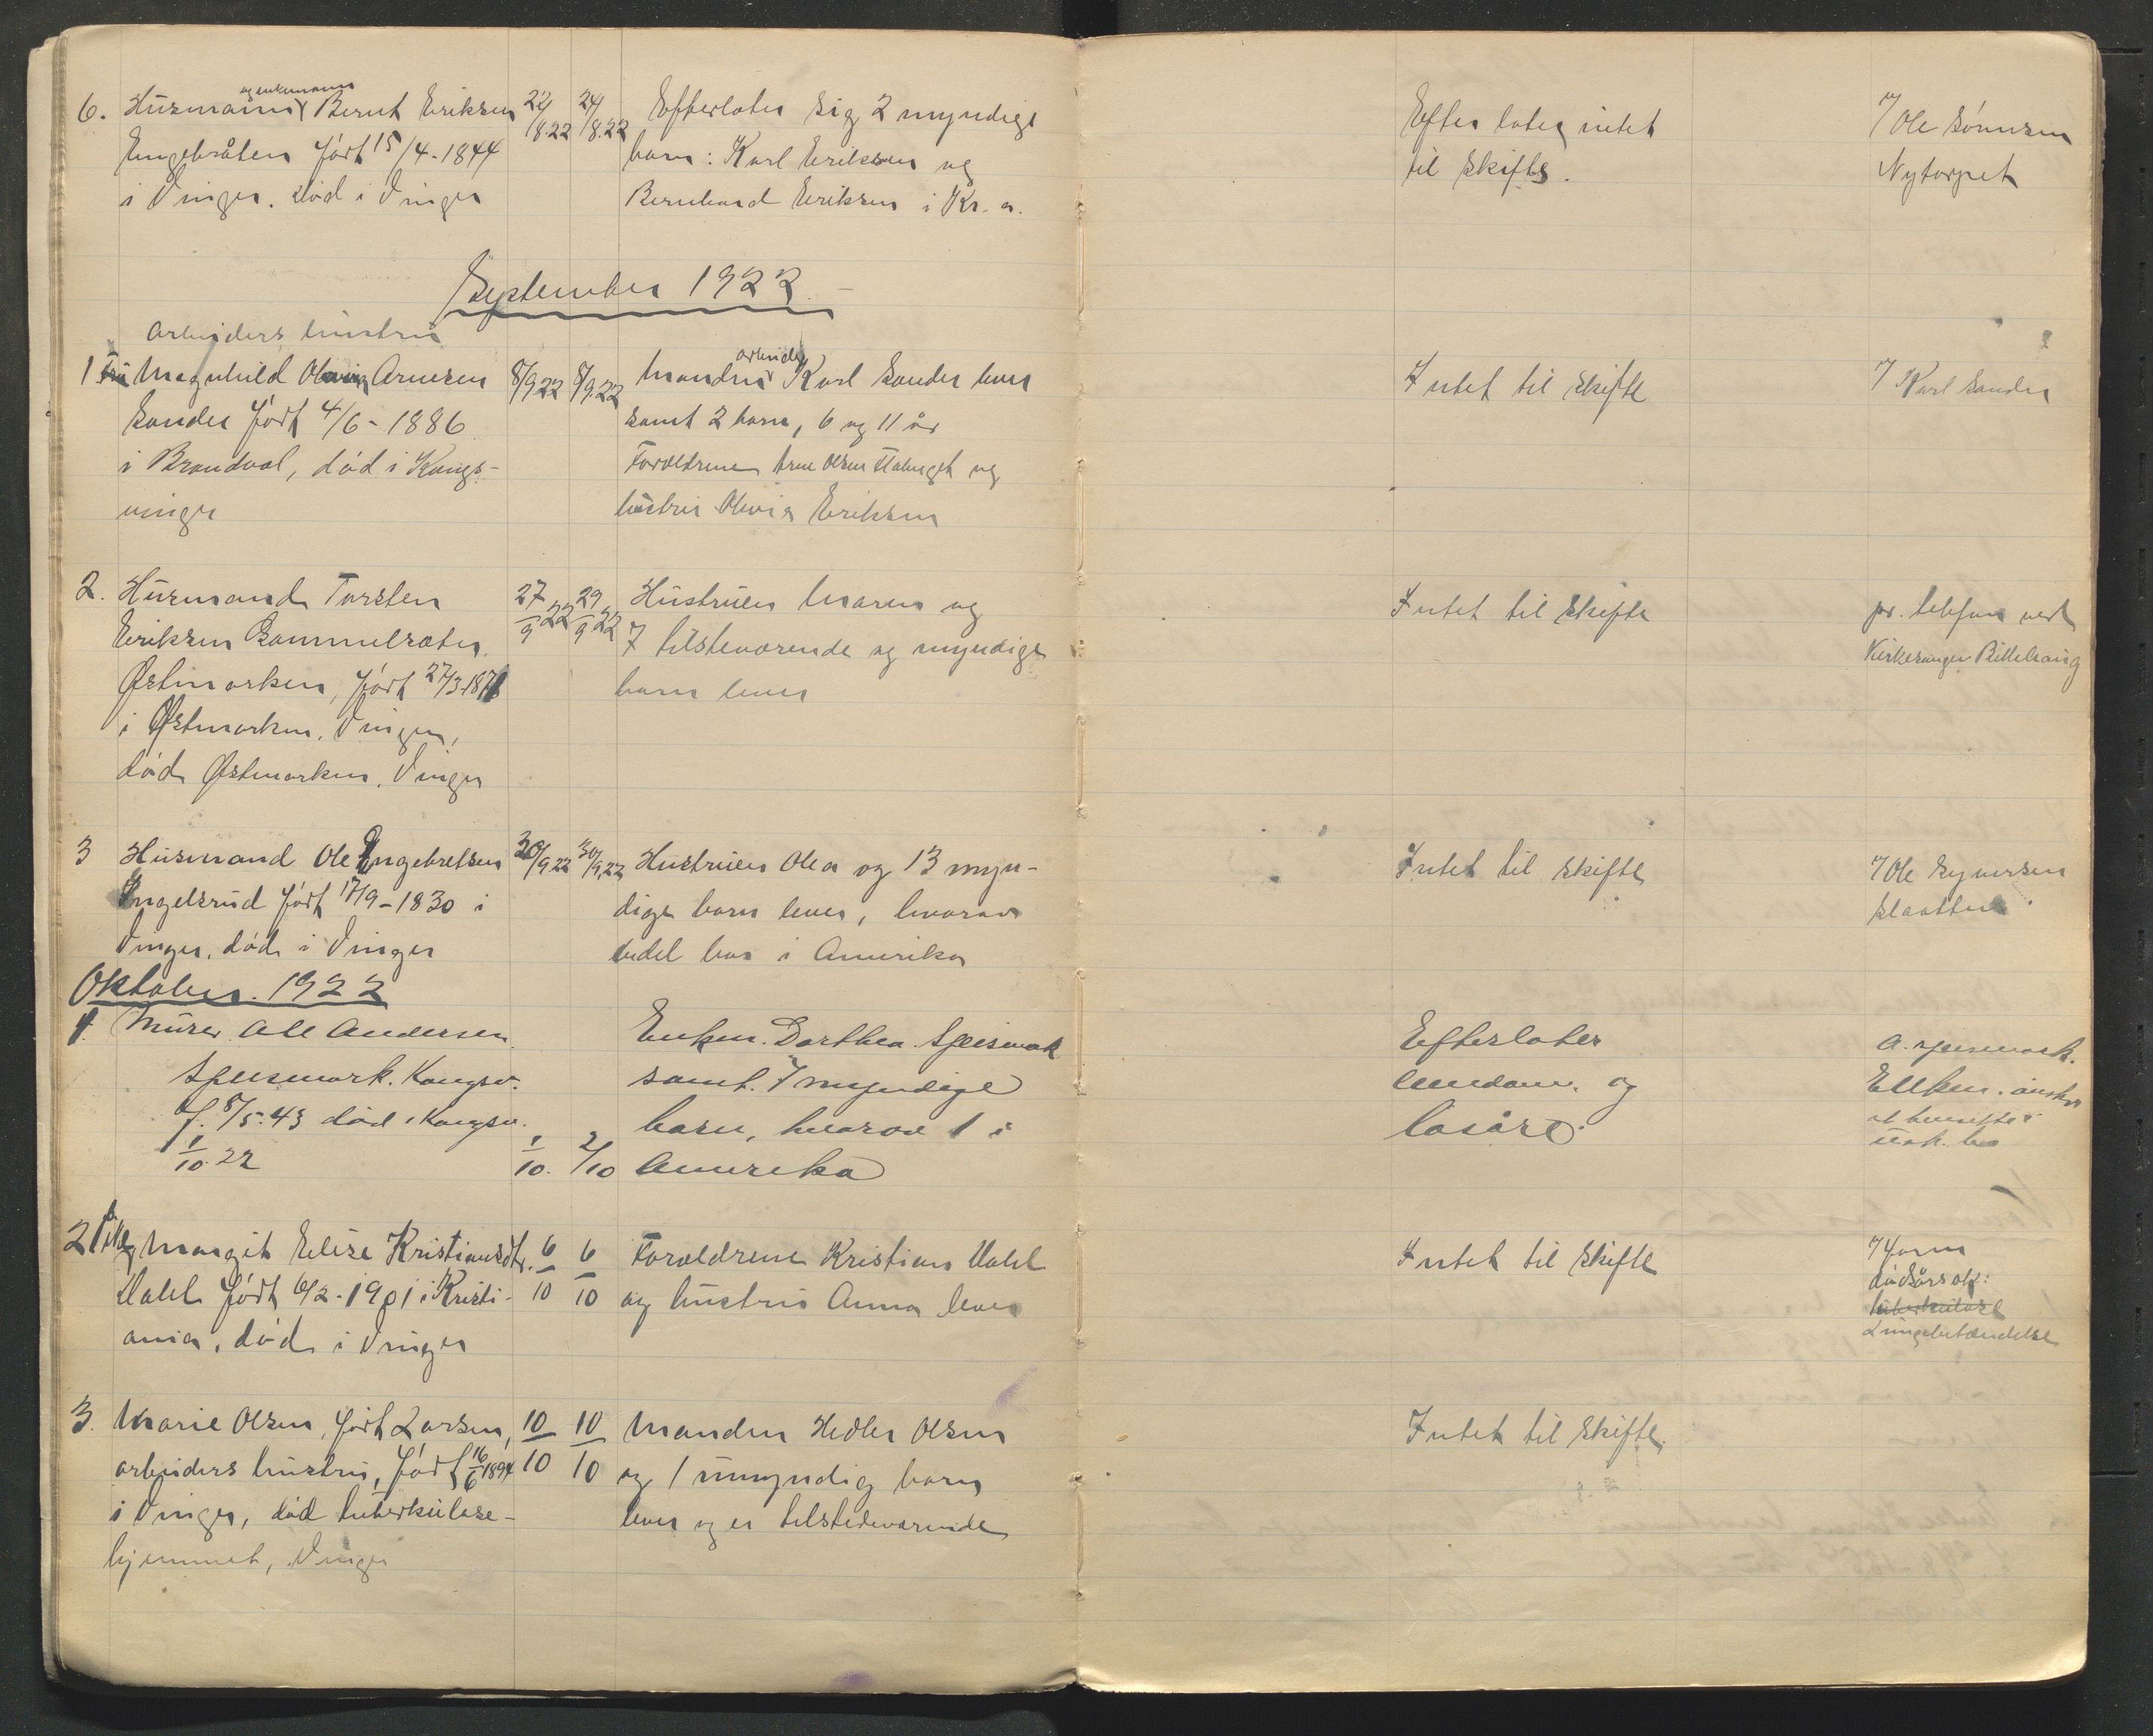 og enkemann
6. Husmann Bernt Eriksen 22/8.22 24/8.22 Efterlater sig 2 myndige Efterlater intet 7 Ole
Engebråten født 15/4-1844 barn: Karl Eriksen og til skifte. Nytorpet
i Vinger. død i Vinger Bernhard Eriksen i Kr. a.
September 1922
arbeiders hustru
1 Fru Magnhild Olivia Arnesen 8/9 22 8/9.22 Manden arbeider Karl Sander lever Intet til skifte 7 Karl Sander
Sander født 4/6-1886 samt 2 barn, 6 og 11 år
i Brandval, død i Kongs- Foreldrene Arne Olsen og
vinger hustru Olivia Eriksen
2. Husmand Torsten 27/9 22 29/9 22 Hustruen Maren og Intet til skifte pr. telefon ved
Eriksen Gammelsæter, 7 tilsteværende og myndige Kirkesanger
Østmarken, født 27/3-187 barn lever
i Østmarken, Vinger,
død Østmarken. Vinger
3 Husmand Ole Engebretsen 30/9 22 30/9.22 Hustruen Olea og 13 myn- Intet til skifte 7 Ole
Ingelsrud født 17/9-1830 i dige barn lever, hvorav
Vinger, død i Vinger endel bor i Amerika
Oktober. 1922
1. Murer Ole Andersen Enken. Dorthea Speismark Efterlater
Speismark. Kongsv. samt. 7 myndige eiendom. og Enken. ønsker
f. 8/5.43 død i Kongsv. barn, hvorav 1 i løsøre.
1/10.22 1/10. 2/10 Amerika
2 Pike Margit Elise Kristiansdtr. 6/10 6/10 Foreldrene Kristian Dahl Intet til skifte 7 Faren
Dahl født 6/2-1901 i Kristi- og hustru Anna lever dødsårsak:
ania, død i Vinger tuberkulose
Lungebetændelse
3. Marie Olsen, født Larsen, 10/10 10/10 Manden Hedler Olsen Intet til skifte.
arbeiders hustru, født 16/6 1894 og 1 umyndig barn
i Vinger, død tuberkulose- lever og er tilstedeværende
hjemmet, Vinger